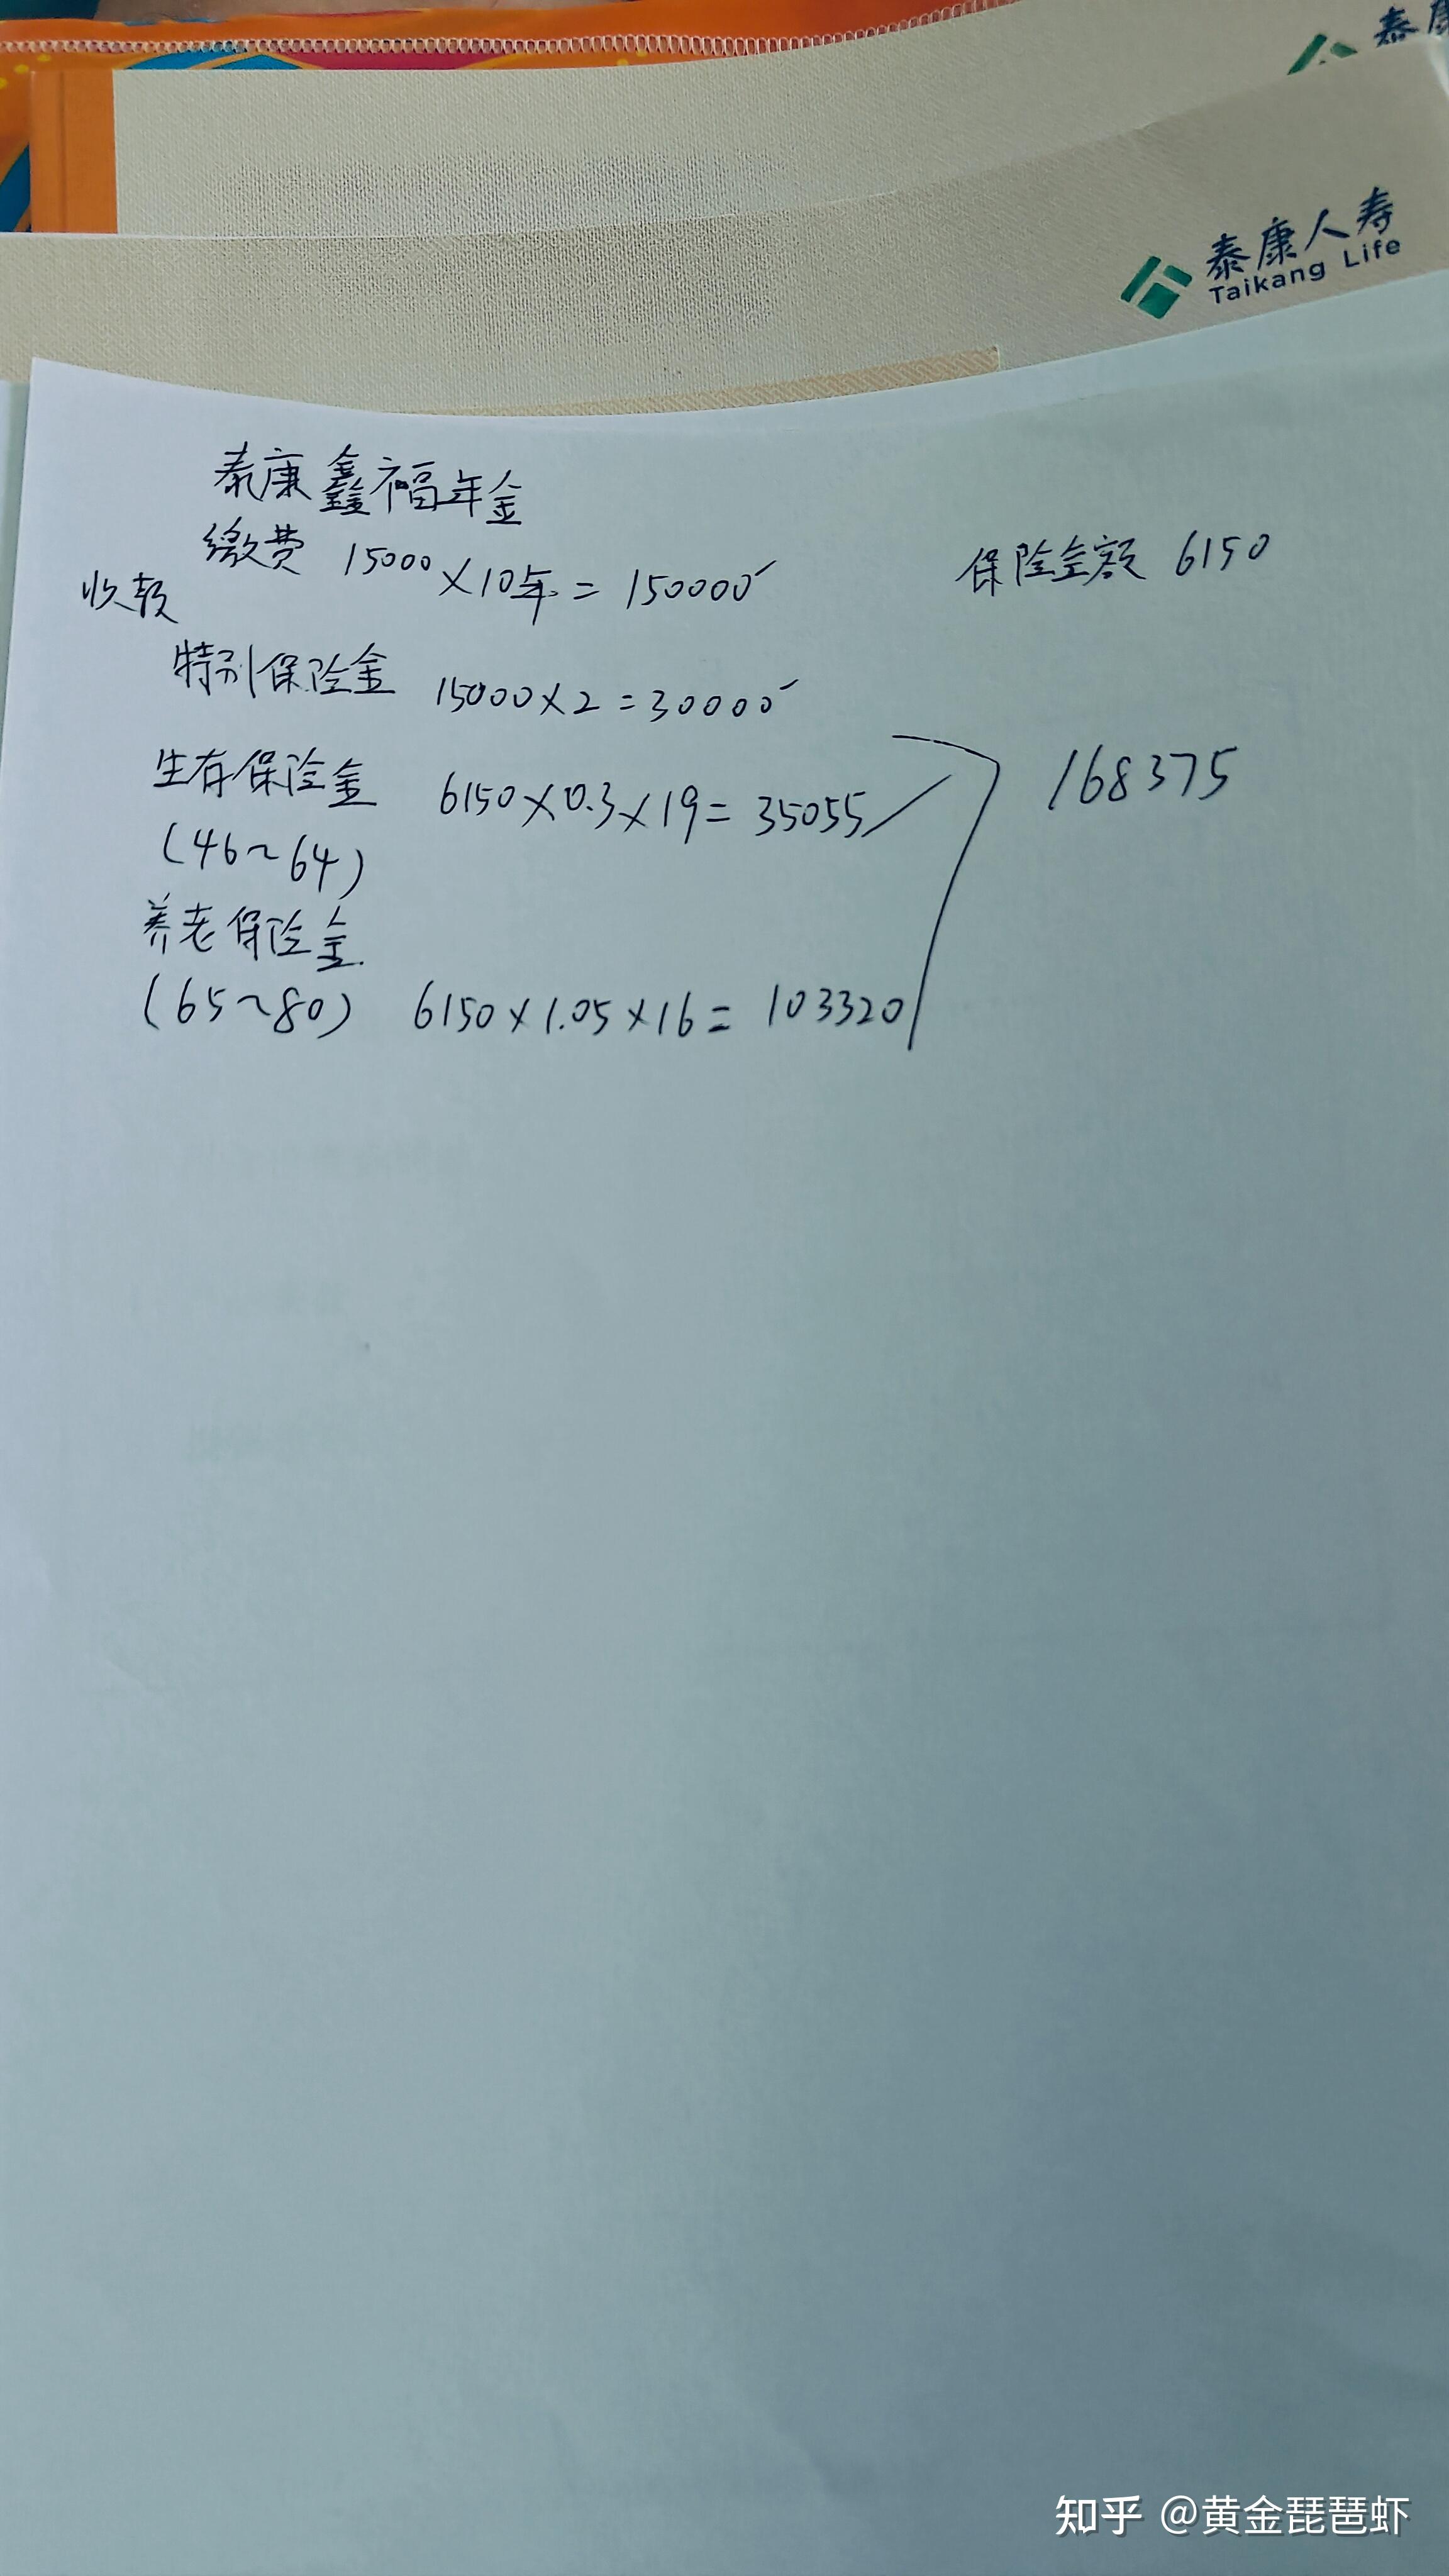 泰康
泰康人寿
Taikang Life
泰康鑫福年金
缴费 15000×10年=150000
保险金额 6150
收款
特别保险金 15000×2=30000
生存保险金 6150×0.3×19=35055
168375
(46~64)
养老保险金
(65~80) 6150×1.05×16=103320
知乎 @黄金琵琶虾